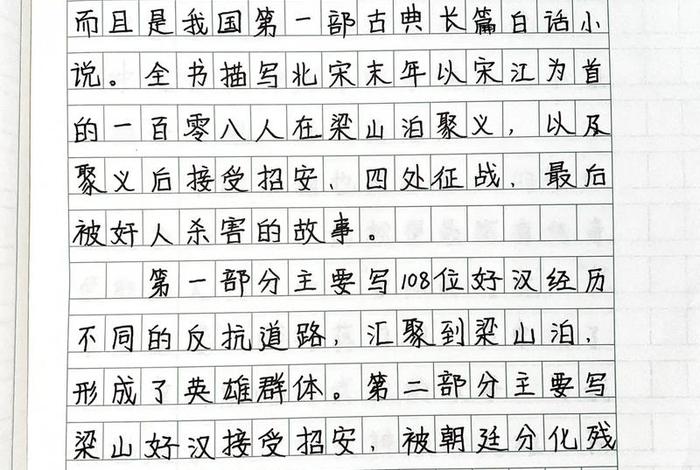 而且是我国第一部古典长篇白话小
说。全书描写北宋末年以宋江为首
的一百零八人在梁山泊聚义,以及
聚义后接受招安、四处征战、最后
被奸人杀害的故事。
第一部分主要写108位好汉经历
不同的反抗道路,汇聚到梁山泊,
形成了英雄群体。第二部分主要写
梁山好汉接受招安,被朝廷分化残